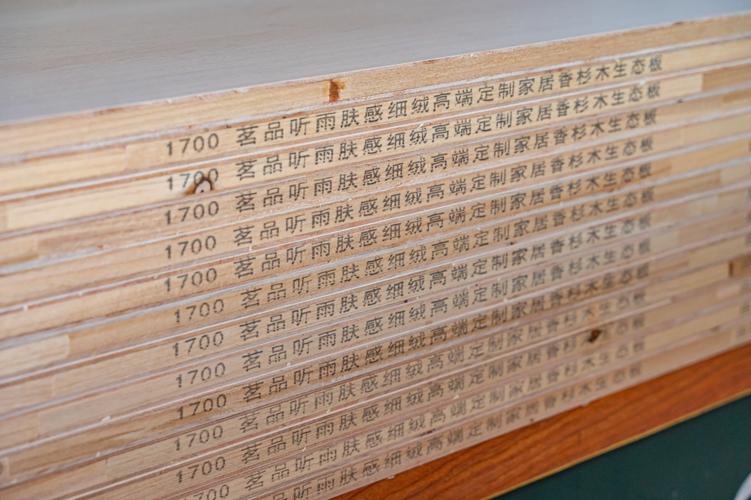 1700 茗品听雨肤感细绒高端定制家居香杉木生态板
1700 茗品听雨肤感细绒高端定制家居香杉木生态板
1700 茗品听雨肤感细绒高端定制家居香杉木生态板
1700 茗品听雨肤感细绒高端定制家居香杉木生态板
1700 茗品听雨肤感细绒高端定制家居香杉木生态板
1700 茗品听雨肤感细绒高端定制家居香杉木生态板
1700 茗品听雨肤感细绒高端定制家居香杉木生态板
1700 茗品听雨肤感细绒高端定制家居香杉木生态板
1700 茗品听雨肤感细绒高端定制家居香杉木生态板
1700 茗品听雨肤感细绒高端定制家居香杉木生态板
1700 茗品听雨肤感细绒高端定制家居香杉木生态板
1700 茗品听雨肤感细绒高端定制家居香杉木生态板